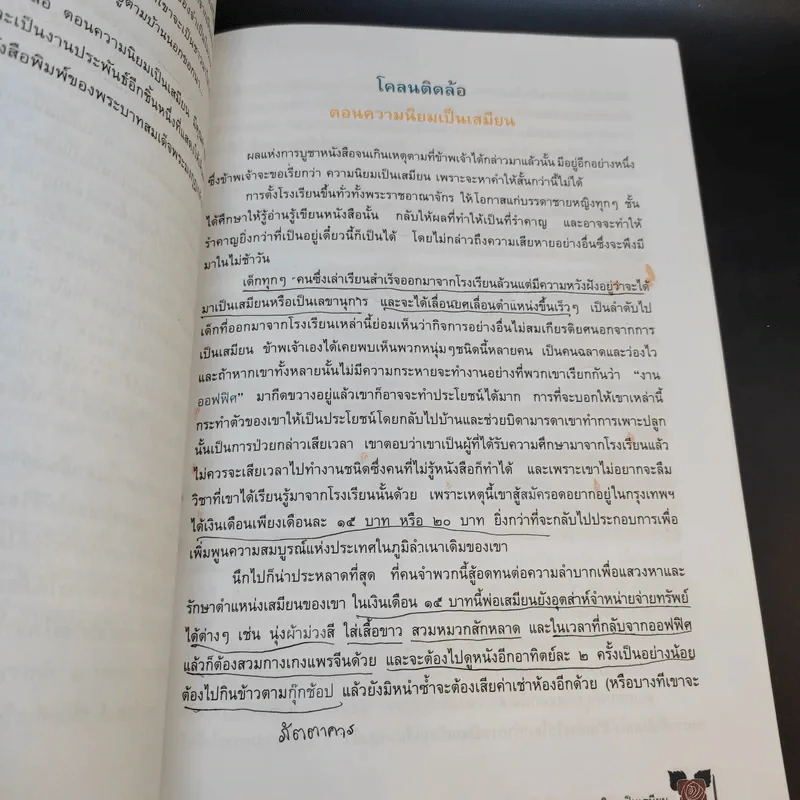 ตอนความนิยมเป็นเสมียน
จะเป็นงานประพันธ์อีกชิ้นหนึ่งที่แสดง
หนังสือพิมพ์ของพระบาทสมเด็จพระ
โคลนติดล้อ
ตอนความนิยมเป็นเสมียน
ผลแห่งการบูชาหนังสือจนเกินเหตุตามที่ข้าพเจ้าได้กล่าวมาแล้วนั้น มีอยู่อีกอย่างหนึ่ง
ซึ่งข้าพเจ้าจะขอเรียกว่า ความนิยมเป็นเสมียน เพราะจะหาคำให้สั้นกว่านี้ไม่ได้
การตั้งโรงเรียนขึ้นทั่วทั้งพระราชอาณาจักร ให้โอกาสแก่บรรดาชายหญิงทุกๆ ชั้น
ได้ศึกษาให้รู้อ่านรู้เขียนหนังสือนั้น กลับให้ผลที่ทำให้เป็นที่รำคาญ และอาจจะทำให้
รำคาญยิ่งกว่าที่เป็นอยู่เดี๋ยวนี้ก็เป็นได้ โดยไม่กล่าวถึงความเสียหายอย่างอื่นซึ่งจะพึงมี
มาในไม่ช้าวัน
เด็กทุกๆ คนซึ่งเล่าเรียนสำเร็จออกมาจากโรงเรียนล้วนแต่มีความหวังฝังอยู่ว่าจะได้
มาเป็นเสมียนหรือเป็นเลขานุการ และจะได้เลื่อนยศเลื่อนตำแหน่งขึ้นเร็วๆ เป็นลำดับไป
เด็กที่ออกมาจากโรงเรียนเหล่านี้ย่อมเห็นว่ากิจการอย่างอื่นไม่สมเกียรติยศนอกจากการ
เป็นเสมียน ข้าพเจ้าเองได้เคยพบเห็นพวกหนุ่มๆชนิดนี้หลายคน เป็นคนฉลาดและว่องไว
และถ้าหากเขาทั้งหลายนั้นไม่มีความกระหายจะทำงานอย่างที่พวกเขาเรียกกันว่า "งาน
ออฟฟิศ" มากีดขวางอยู่แล้วเขาก็อาจจะทำประโยชน์ได้มาก การที่จะบอกให้เขาเหล่านี้
กระทำตัวของเขาให้เป็นประโยชน์โดยกลับไปบ้านและช่วยบิดามารดาเขาทำการเพาะปลูก
นั้นเป็นการป่วยกล่าวเสียเวลา เขาตอบว่าเขาเป็นผู้ที่ได้รับความศึกษามาจากโรงเรียนแล้ว
ไม่ควรจะเสียเวลาไปทำงานชนิดซึ่งคนที่ไม่รู้หนังสือก็ทำได้ และเพราะเขาไม่อยากจะลืม
วิชาที่เขาได้เรียนรู้มาจากโรงเรียนนั้นด้วย เพราะเหตุนี้เขาสู้สมัครอดอยากอยู่ในกรุงเทพฯ
ได้เงินเดือนเพียงเดือนละ ๑๕ บาท หรือ ๒๐ บาท ยิ่งกว่าที่จะกลับไปประกอบการเพื่อ
เพิ่มพูนความสมบูรณ์แห่งประเทศในภูมิลำเนาเดิมของเขา
นึกไปก็น่าประหลาดที่สุด ที่คนจำพวกนี้สู้อดทนต่อความลำบากเพื่อแสวงหาและ
รักษาตำแหน่งเสมียนของเขา ในเงินเดือน ๑๕ บาทนี้พ่อเสมียนยังอุตส่าห์จำหน่ายจ่ายทรัพย์
ได้ต่างๆ เช่น นุ่งผ้าม่วงสี ใส่เสื้อขาว สวมหมวกสักหลาด และในเวลาที่กลับจากออฟฟิศ
แล้วก็ต้องสวมกางเกงแพรจีนด้วย และจะต้องไปดูหนังอีกอาทิตย์ละ ๒ ครั้งเป็นอย่างน้อย
ต้องไปกินข้าวตามกุ๊กช้อป แล้วยังมิหนำซ้ำจะต้องเสียค่าเช่าห้องอีกด้วย (หรือบางทีเขาจะ
ภัตตาคาร